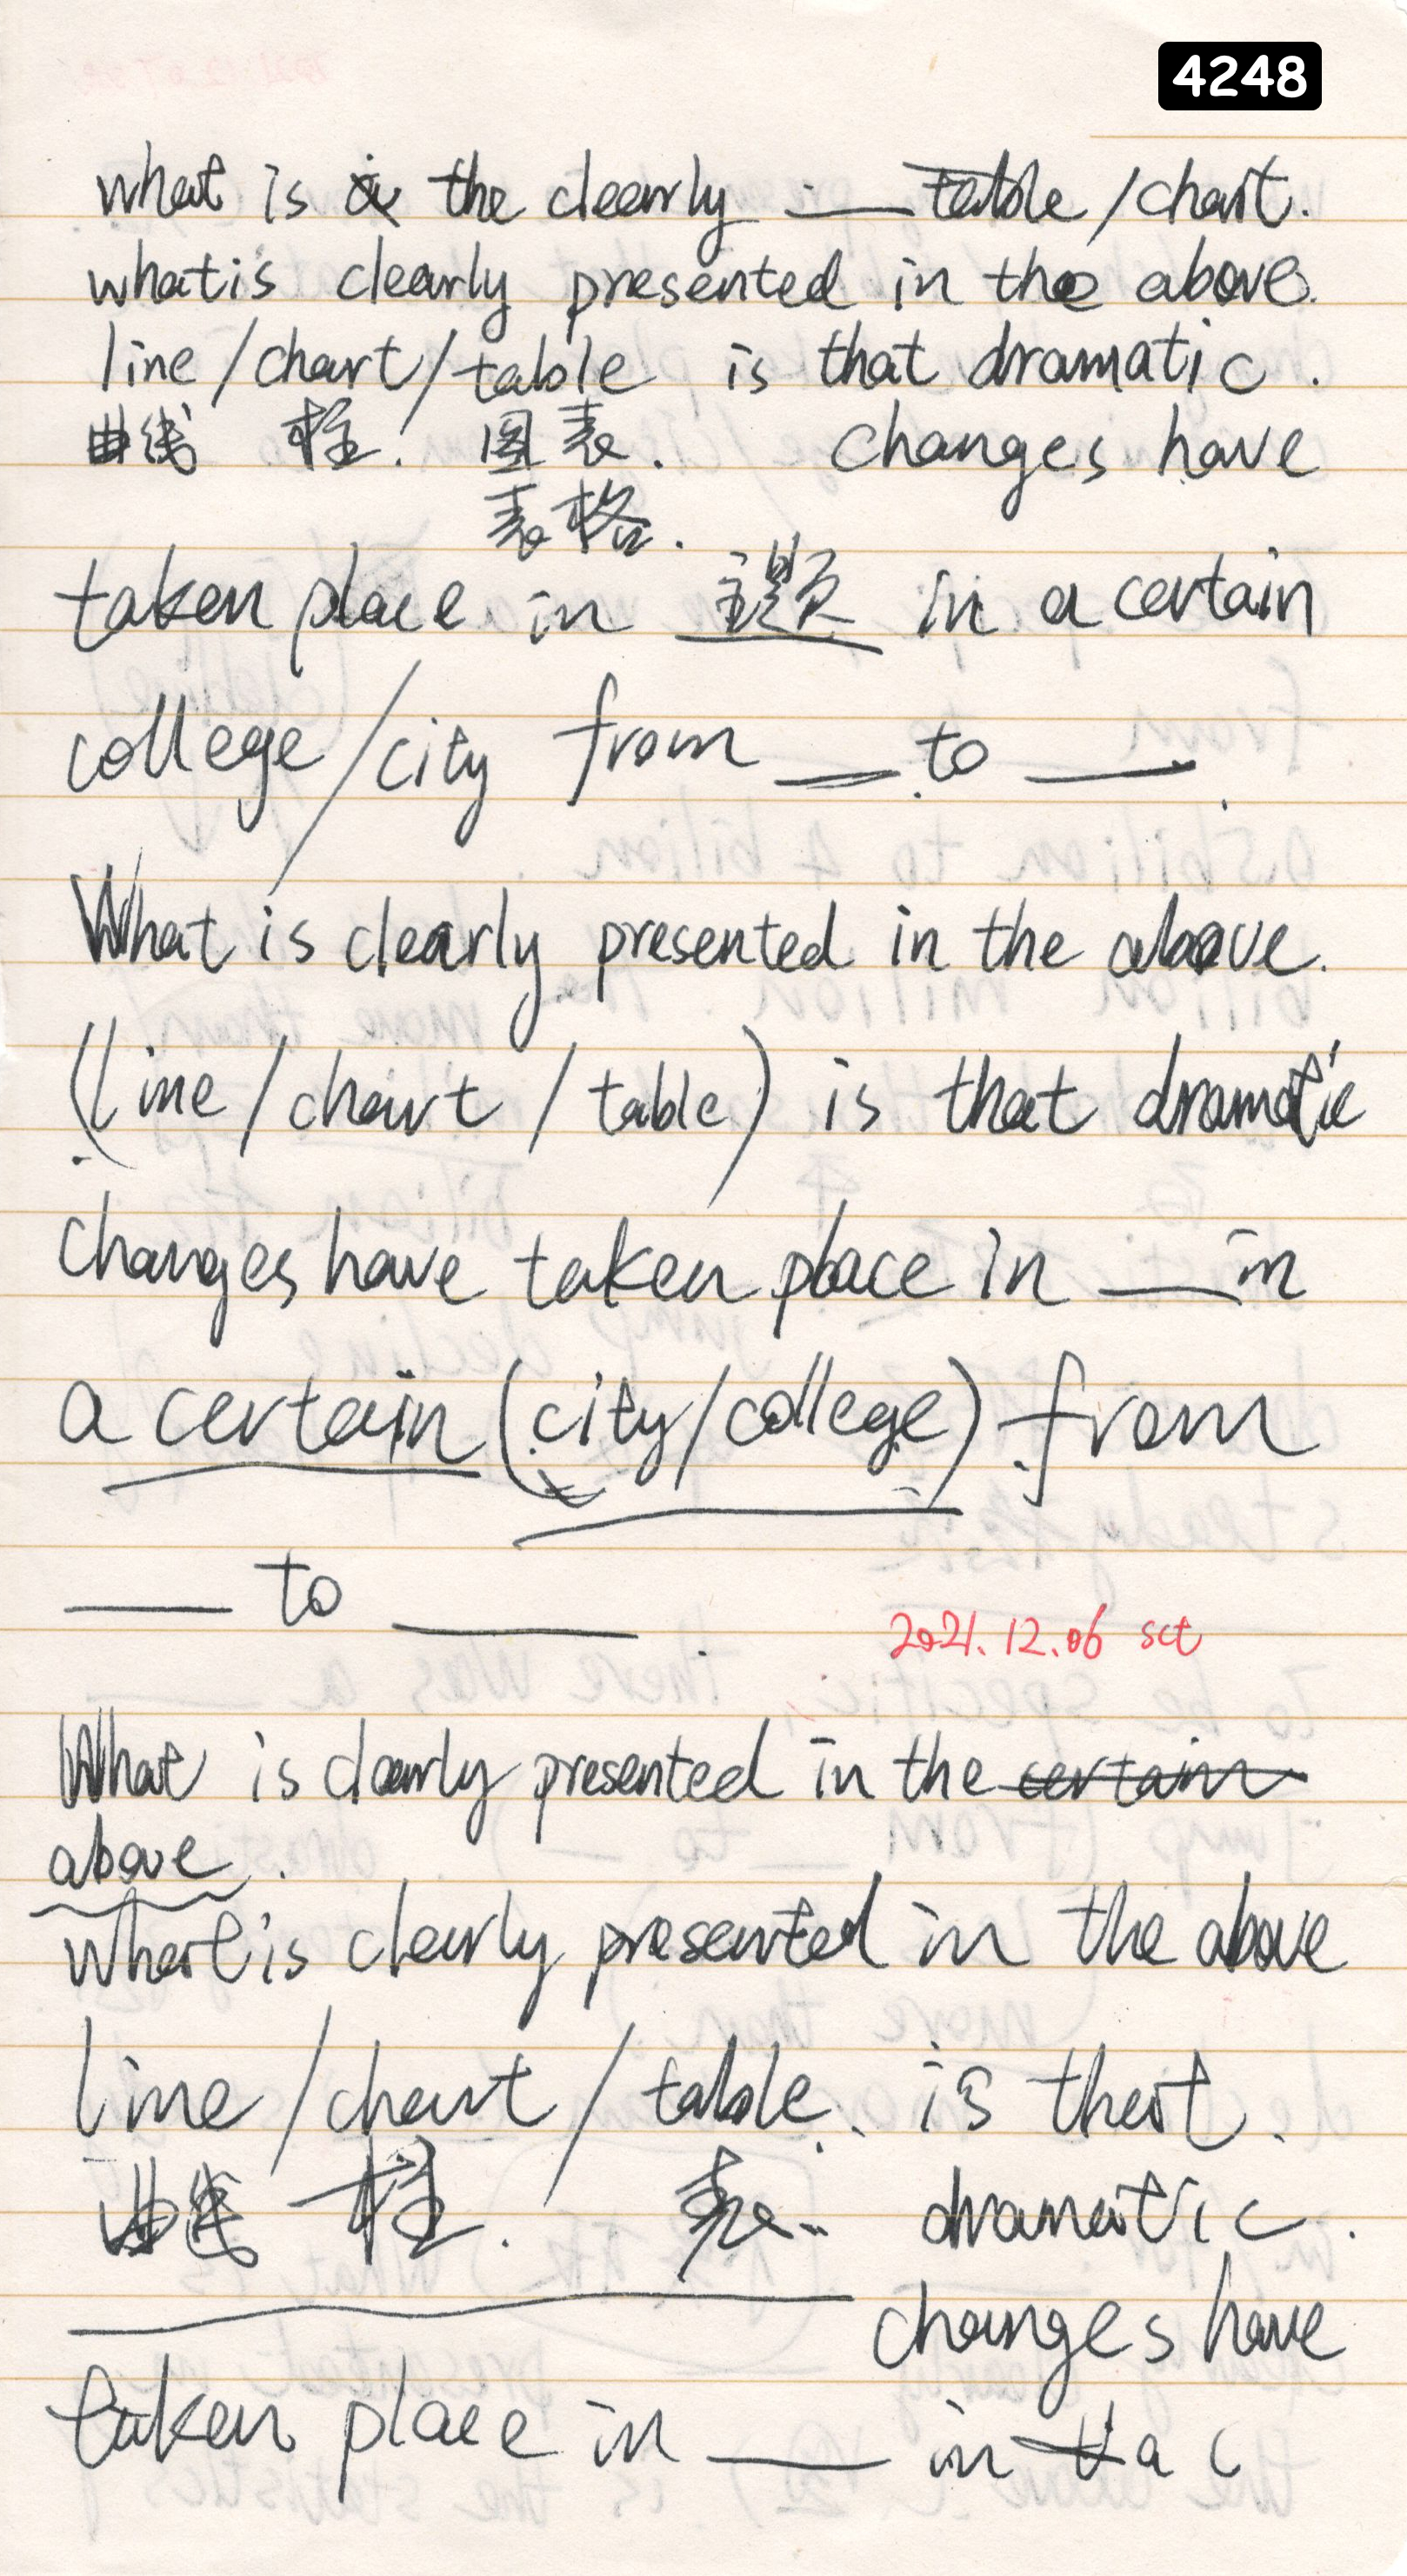 4248
what is the clearly — table/chart.
what is clearly presented in the above.
line/chart/table is that dramatic.
曲线 柱. 图表. changes have
表格.
taken place in 主题 in a certain
college/city from __ to __.
What is clearly presented in the above.
(line/chart/table) is that dramatic
changes have taken place in __ in
a certain (city/college) from
__ to __.
2021.12.06 sct
What is clearly presented in the certain
above.
What is clearly presented in the above
line/chart/table. is that.
曲线 柱. 表.. dramatic.
changes have
taken place in __ in a c